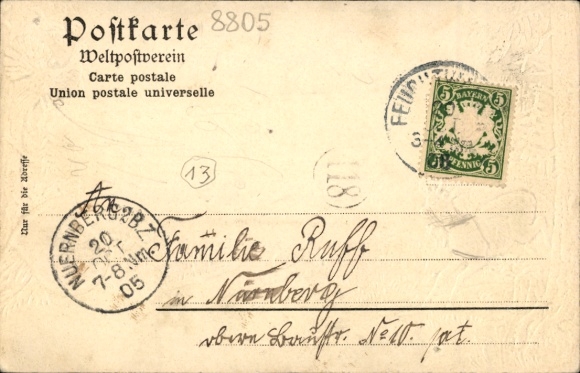 8805
Postkarte
Weltpostverein
Carte postale
Union postale universelle
BAYERN
5 5
PFENNIG
5 5
Nur für die Adresse
13
118
An
NUERNBERG 2 B.Z.
20
OKT
7-8 Nm.
05
Familie Ruff
in Nürnberg
obere Baustr. No 10. pt.